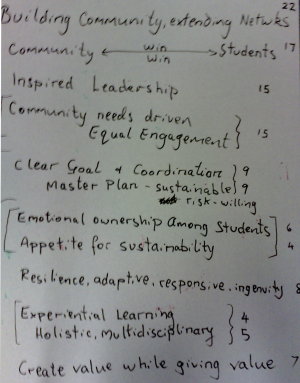 22
Building Community, extending Netwks
Community win win Students 17
Inspired Leadership 15
Community needs driven
Equal Engagement 15
Clear Goal & Coordination 9
Master Plan - sustainable 9
risk-willing
Emotional ownership Among Students 6
Appetite for sustainability 4
Resilience, adaptive, responsive, ingenuity 8
Experiential Learning 4
Holistic, Multidisciplinary 5
Create value while giving value 7